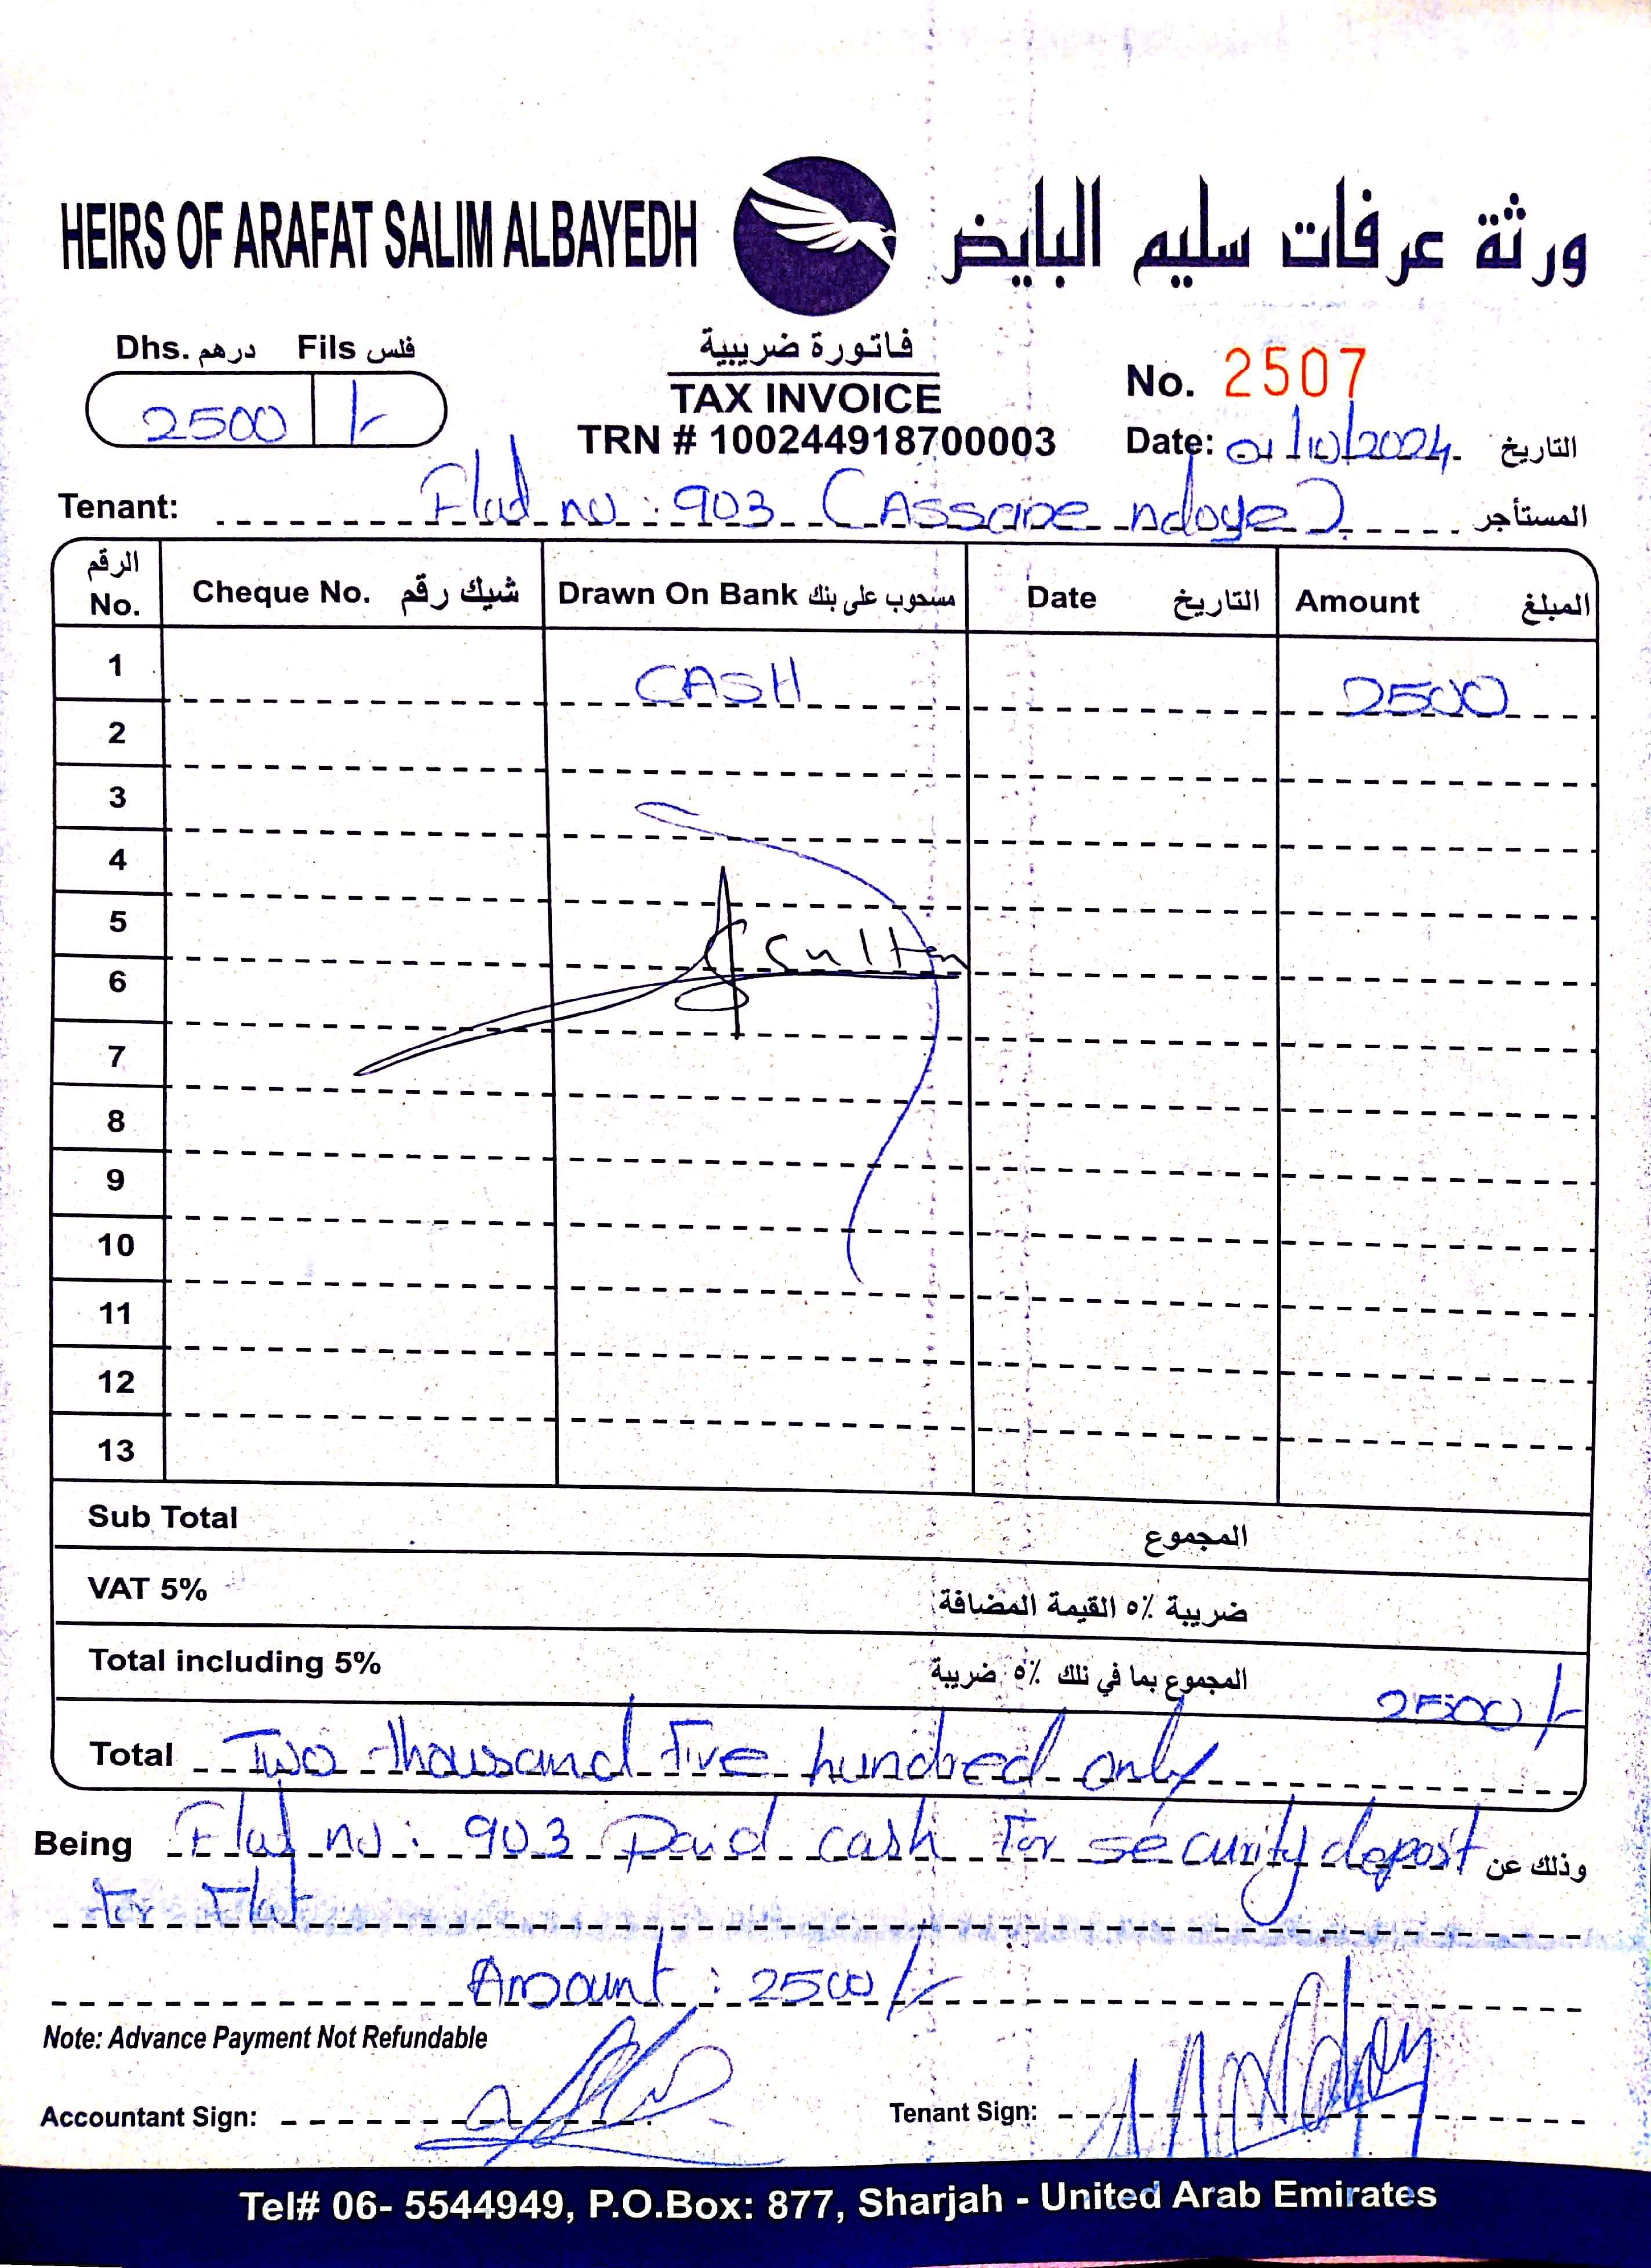 HEIRS OF ARAFAT SALIM ALBAYEDH ورثة عرفات سليم البايض
Dhs. درهم Fils فلس
2500 /-
فاتورة ضريبية
TAX INVOICE
TRN # 100244918700003
No. 2507
Date: 01/10/2024 التاريخ
Tenant: Flat no : 903 (Assane ndoye) المستأجر
الرقم No. Cheque No. شيك رقم Drawn On Bank مسحوب على بنك Date التاريخ Amount المبلغ
1 CASH 2500
2
3
4
5
6
7
8
9
10
11
12
13
Sub Total المجموع
VAT 5% ضريبة ٥٪ القيمة المضافة
Total including 5% المجموع بما في ذلك ٥٪ ضريبة 2500/-
Total Two thousand Five hundred only
Being Flat no : 903 Paid cash For security deposit وذلك عن
For Flat
Amount : 2500/-
Note: Advance Payment Not Refundable
Accountant Sign:
Tenant Sign:
Tel# 06- 5544949, P.O.Box: 877, Sharjah - United Arab Emirates